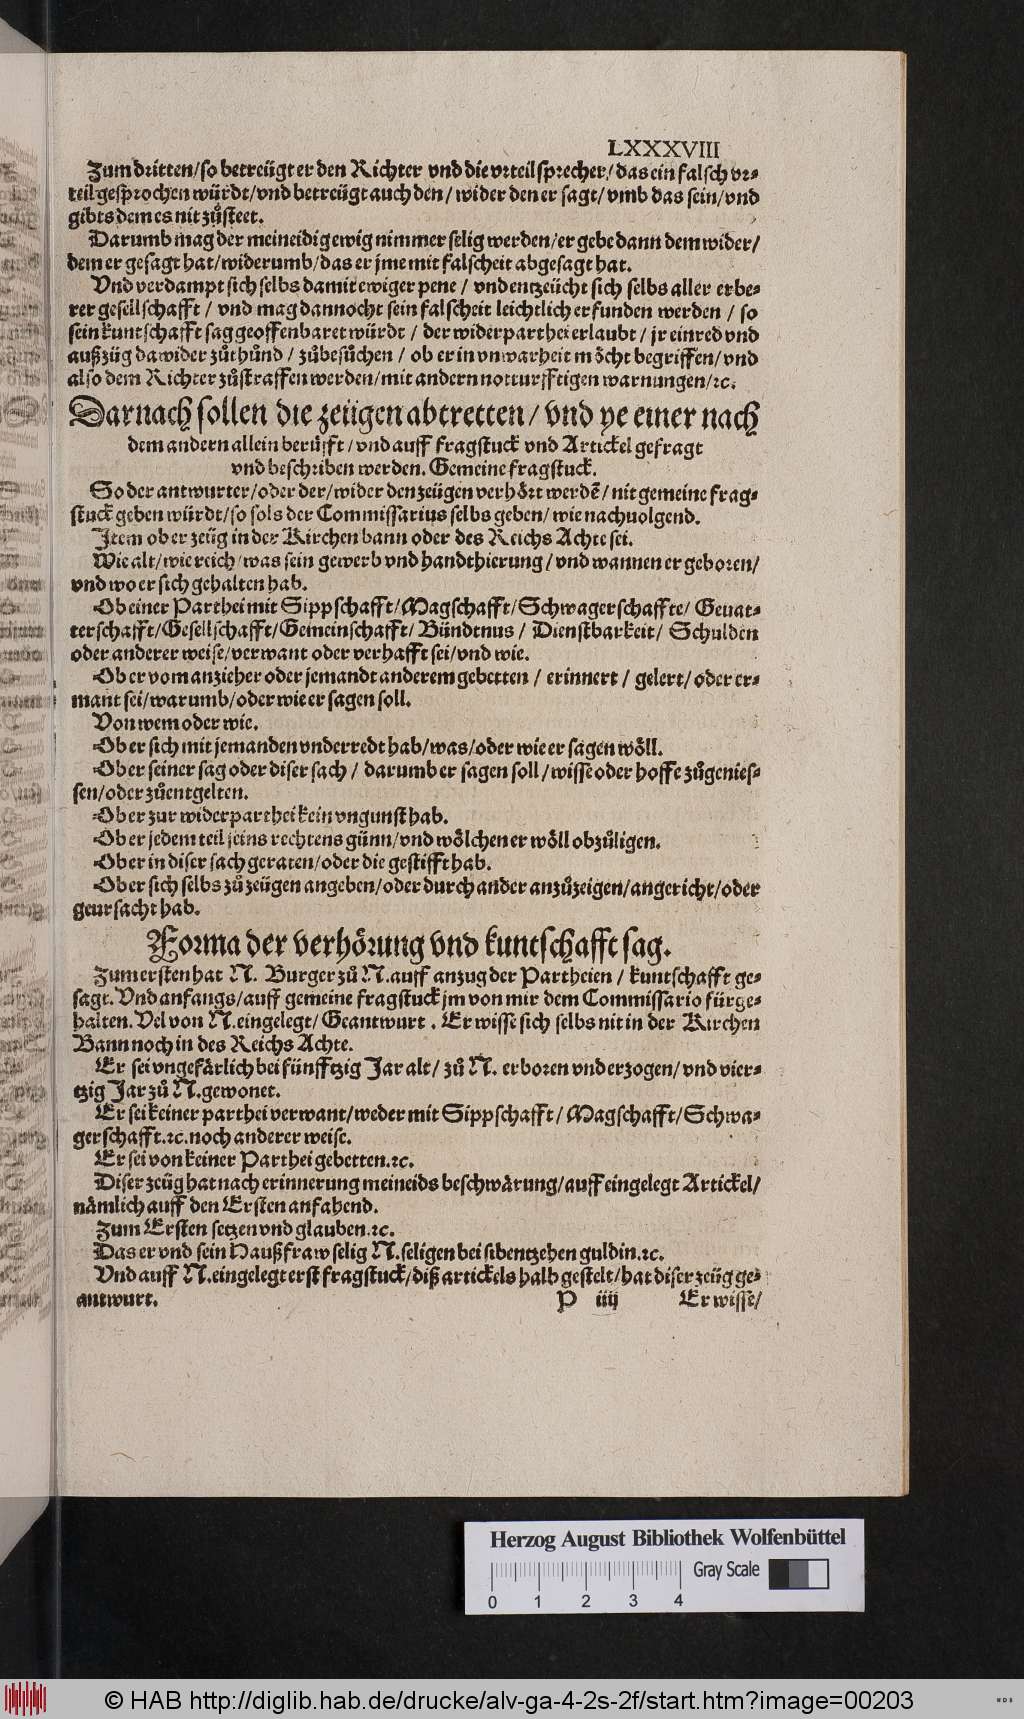 LXXXVIII
Zum dritten/so betreügt er den Richter vnd die vrteilsprecher/das ein falsch vr⸗
teil gesprochen würdt/vnd betreügt auch den/wider den er sagt/vmb das sein/vnd
gibts dem es nit zůsteet.
Darumb mag der meineidig ewig nimmer selig werden/er gebe dann dem wider/
dem er gesagt hat/widerumb/das er jme mit falscheit abgesagt hat.
Vnd verdampt sich selbs damit ewiger pene / vnd entzeücht sich selbs aller erbe⸗
rer gesellschafft / vnd mag dannocht sein falscheit leichtlich erfunden werden / so
sein kuntschafft sag geoffenbaret würdt / der widerparthei erlaubt / jr einred vnd
außzüg dawider zůthůnd / zůbesůchen / ob er in vnwarheit möcht begriffen/vnd
also dem Richter zůstraffen werden/mit andern notturfftigen warnungen/ꝛc.
Darnach sollen die zeügen abtretten/ vnd ye einer nach
dem andern allein berüfft/vnd auff fragstuck vnd Artickel gefragt
vnd beschriben werden. Gemeine fragstuck.
So der antwurter/oder der/wider den zeügen verhört werdē/nit gemeine frag⸗
stuck geben würdt/so sols der Commissarius selbs geben/wie nachuolgend.
Item ob er zeüg in der Kirchen bann oder des Reichs Achte sei.
Wie alt/wie reich/was sein gewerb vnd handthierung/vnd wannen er geboren/
vnd wo er sich gehalten hab.
Ob einer Parthei mit Sippschafft/Magschafft/Schwagerschaffte/ Geuat⸗
terschafft/Gesellschafft/Gemeinschafft/ Bündtnus / Dienstbarkeit/ Schulden
oder anderer weise/verwant oder verhafft sei/vnd wie.
Ob er vom anzieher oder jemandt anderem gebetten / erinnert / gelert/oder er⸗
mant sei/warumb/oder wie er sagen soll.
Von wem oder wie.
Ob er sich mit jemanden vnderredt hab/was/oder wie er sagen wöll.
Ob er seiner sag oder diser sach / darumb er sagen soll/wisse oder hoffe zůgenies⸗
sen/oder zůentgelten.
Ob er zur widerparthei kein vngunst hab.
Ob er jedem teil seins rechtens günn/vnd wölchen er wöll obzůligen.
Ob er in diser sach geraten/oder die gestifft hab.
Ob er sich selbs zů zeügen angeben/oder durch ander anzůzeigen/angericht/oder
geursacht hab.
Forma der verhörung vnd kuntschafft sag.
Zum ersten hat N. Burger zů N. auff anzug der Partheien / kuntschafft ge⸗
sagt. Vnd anfangs/auff gemeine fragstuck jm von mir dem Commissario fürge⸗
halten. Vel von N. eingelegt/ Geantwurt. Er wisse sich selbs nit in der Kirchen
Bann noch in des Reichs Achte.
Er sei vngefärlich bei fünfftzig Jar alt/ zů N. erboren vnd erzogen/vnd vier⸗
tzig Jar zů N. gewonet.
Er sei keiner parthei verwant/weder mit Sippschafft/Magschafft/Schwa⸗
gerschafft.ꝛc. noch anderer weise.
Er sei von keiner Parthei gebetten.ꝛc.
Diser zeüg hat nach erinnerung meineids beschwärung/auff eingelegt Artickel/
nämlich auff den Ersten anfahend.
Zum Ersten setzen vnd glauben.ꝛc.
Das er vnd sein Haußfraw selig N. seligen bei sibentzehen guldin.ꝛc.
Vnd auff N. eingelegt erst fragstuck/diß artickels halb gestelt/hat diser zeüg ge⸗
antwurt.
P iiij Er wisse/
Herzog August Bibliothek Wolfenbüttel
Gray Scale
0 1 2 3 4
© HAB http://diglib.hab.de/drucke/alv-ga-4-2s-2f/start.htm?image=00203